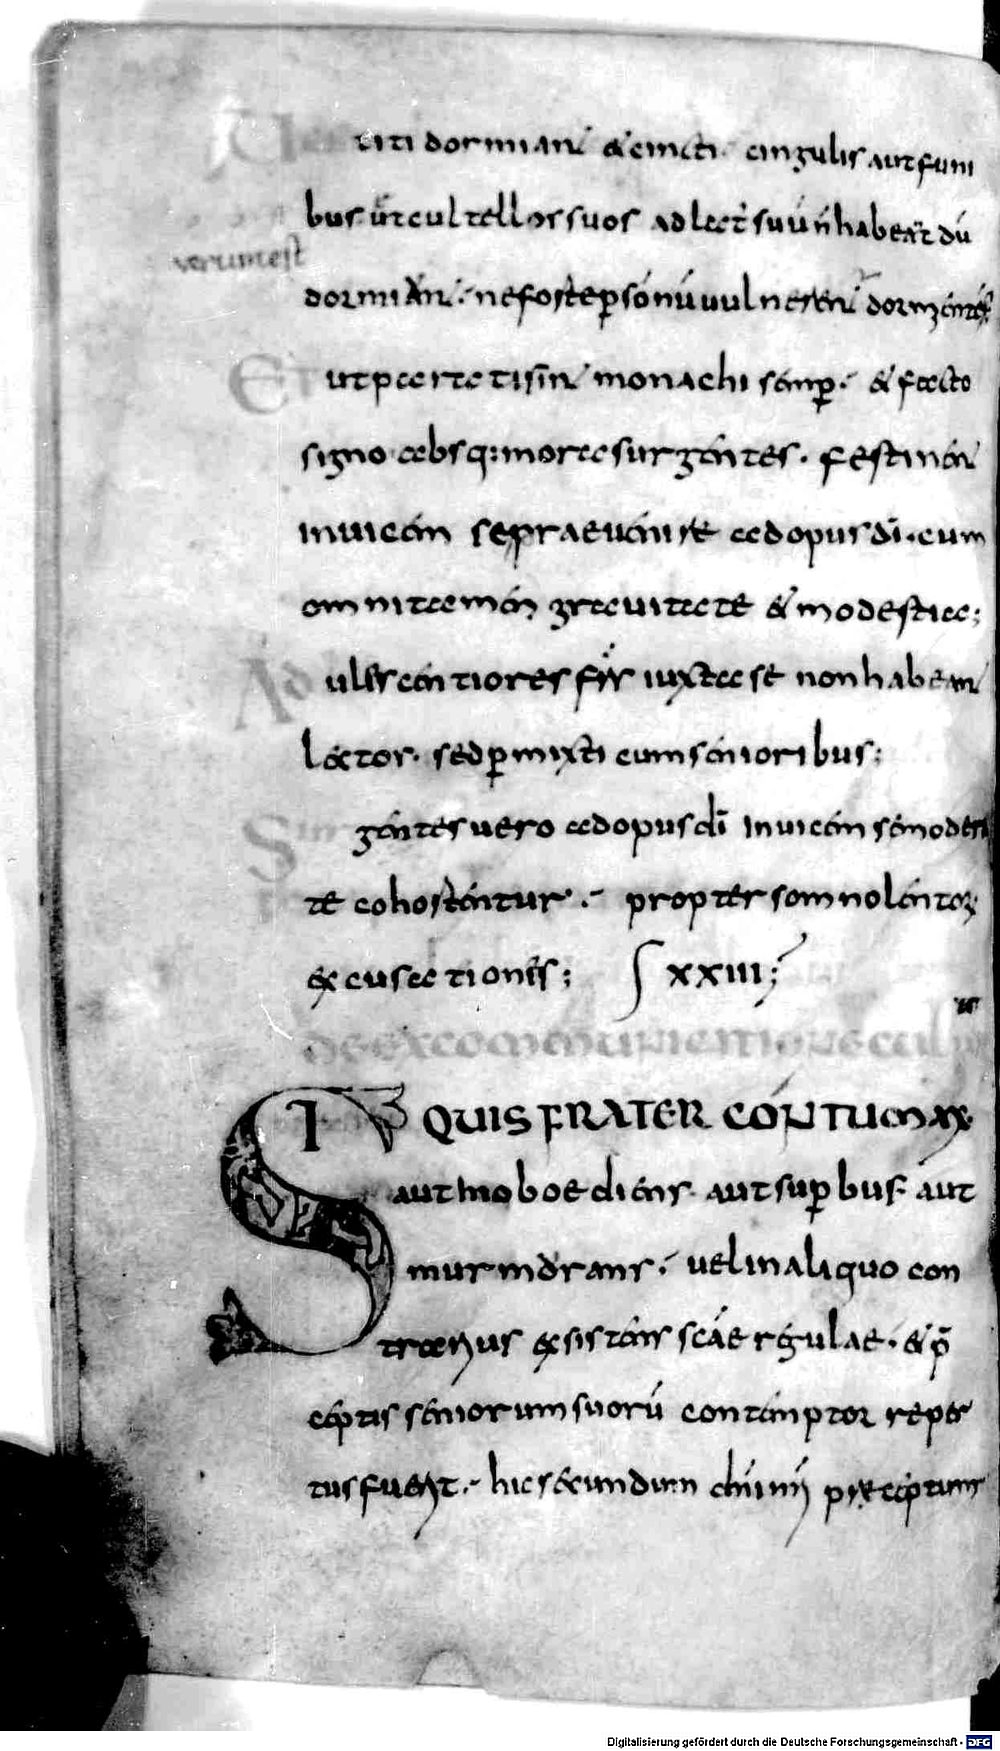 Ues titi dormian̄ & cincti cingulis aut funi
bus ut cultellos suos ad lect̄ suū n̄ habeat dū
verum est
dormiun̄ ne forte p̲ somnū vulneren̄ dormientes
Et ut parati sin̄ monachi semp̲ & facto
signo absq: mora surgentes. festinen̄
inuicem se praeuenire ad opus dī. cum
omni tamen grauitate & modestia;
Adulescentiores frs̄ iuxta se non habean̄
lectos. sed p̲mixti cum senioribus;
Surgentes uero ad opus dī inuicem se modera
te cohortentur. propter somnolentor̄
excusationes; XXIII;
de excommunicatione culp
SI QUIS FRATER CONTUMAX
aut inoboediens. aut sup̲bus. aut
murmorans. uel in aliquo con
trarius exsistens scāe regulae. & p̄
ceptis seniorum suorū contemptor reper
tus fuerit. hic secundum dn̄i nr̄i praeceptum
Digitalisierung gefördert durch die Deutsche Forschungsgemeinschaft - DFG